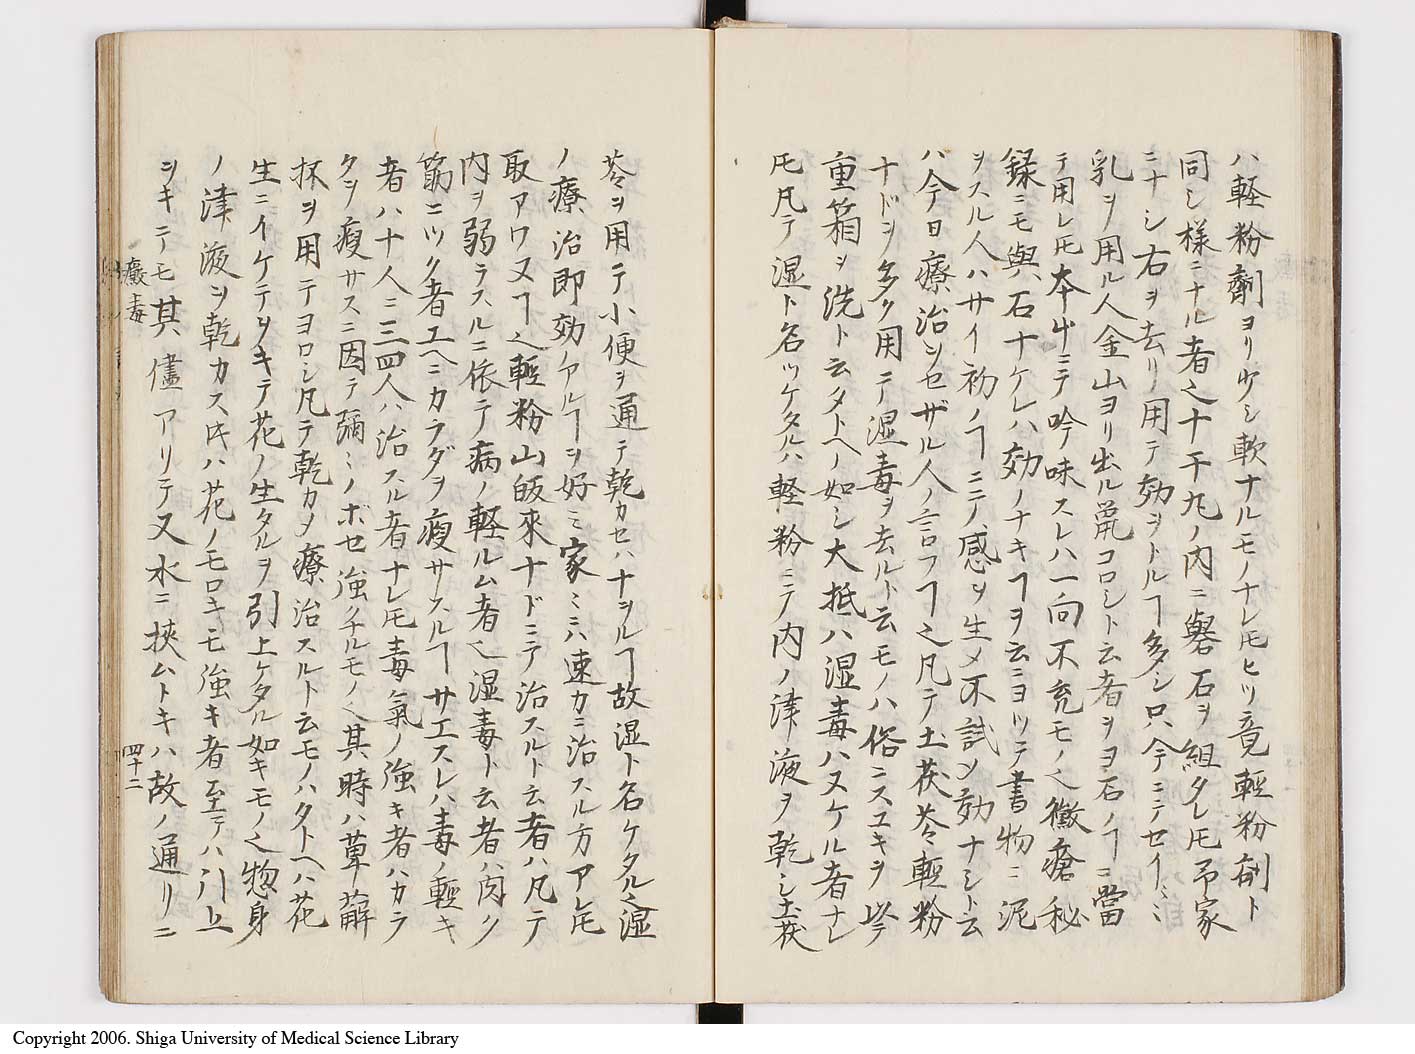 ハ軽粉劑ヨリ少シ軟ナルモノナレ𪜈ヒツ竟軽粉剤ト
同シ様ニナル者也十干丸ノ内ニ礜石ヲ組タレ𪜈吊家
ニナシ右ヲ去リ用テ効ヲトルヿ多シ只今ニテセイミニ
乳ヲ用ル人金山ヨリ出ル鼠コロシト云者ヲヨ石ノヿニ當
テ用レ𪜈本ニテ吟味スレハ一向不充モノ也黴瘡秘
録ニモ與石ナケレハ効ノナキヿヲ云ニヨツテ書物ニ泥
ヲスル人ハサイ初ノヿニテ感ヲ生メ不試ソ効ナシト云
ハ今日療治ヲセザル人ノ言フヿ也凡テ土茯苓軽粉
ナドヲ多ク用テ湿毒ヲ去ルト云モノハ俗ニスユキヲ
重箱ヲ洗ト云タトヘノ如シ大抵ハ湿毒ハヌケル者ナレ
𪜈凡テ湿ト名ツケタルハ軽粉ニテ内ノ津液ヲ乾シ土茯
苓ヲ用テ小便ヲ通テ乾カセハナヲルヿ故湿ト名ケタル也湿
ノ療治即効アルヿヲ好ミ家ミニハ速カニ治スル方アレ𪜈
取アワヌヿ也軽粉山皈來ナドニテ治スルト云者ハ凡テ
内ヲ弱ラスルニ依テ病ノ軽ルム者也湿毒ト云者ハ肉ク
筋ニツク者ユヘニカラダヲ瘦サスルヿサエスレハ毒ノ軽キ
者ハ十人ニ三四人ハ治スル者ナレ𪜈毒氣ノ強キ者ハカラ
タヲ瘦サスニ因テ彌ミノボセ強クナルモノ也其時ハ萆薢
抔ヲ用テヨロシ凡テ乾カメ療治スルト云モノハタトヘハ花
生ニイケテヲキテ花ノ生タルヲ引上ケタル如キモノ也惣身
ノ津液ヲ乾カス𪜈ハ花ノモロキモ強キ者至テハ引上
ヲキニテモ其儘アリテ又水ニ挾ムトキハ故ノ通リニ
黴毒
四十二
Copyright 2006. Shiga University of Medical Science Library